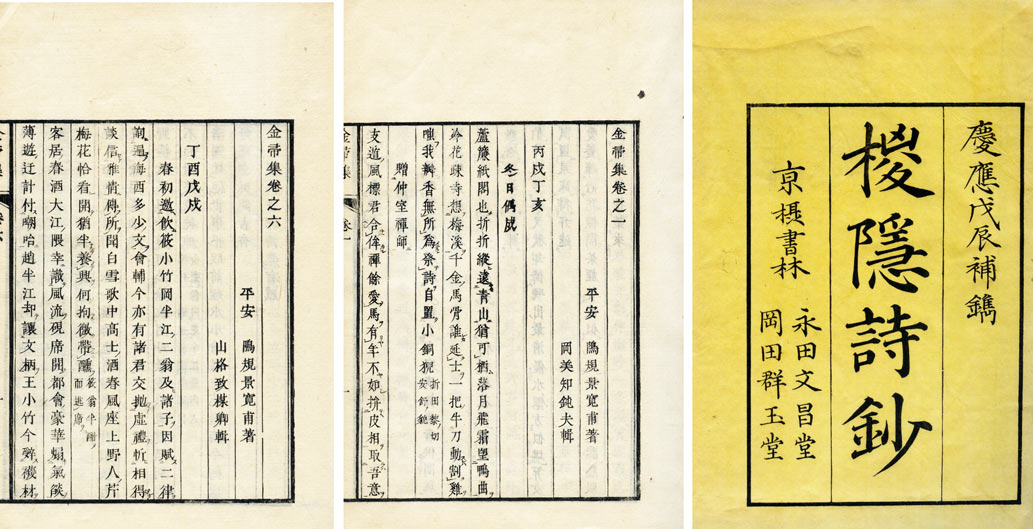 慶應戊辰補鐫
椶隱詩鈔
京攝書林
永田文昌堂
岡田群玉堂
金帚集卷之一
平安 隝規景寬甫著
岡美知鈍夫輯
丙戌丁亥
冬日偶成
蘆簾紙閣也折折縱遠青山猶可栖落月飛霜望鴨曲
冷花疎寺想梅溪千金馬骨誰延士一把牛刀動割雞
我瓣香無所爲祭詩自置小銅猊
贈仲室禪師
支遁風標君合侔禪餘愛馬有年不如拚皮相取吾意
金帚集
卷一
金帚集卷之六
平安 隝規景寬甫著
山格致楳卿輯
丁酉戊戌
春初邀飲筱小竹岡半江二翁及諸子因賦二律
洵過海西多少文會輔今亦有諸君交拋虛禮忻相得
談信雅情傳所聞白雪歌中高士酒春風座上野人芹
梅花恰看開猶半養興何拘微帶醺
客居春酒大江隈幸識風流硯席開都會豪華煽氣燄
薄遊迂計付嘲咍趙半江却讓文柄王小竹今辟穢材